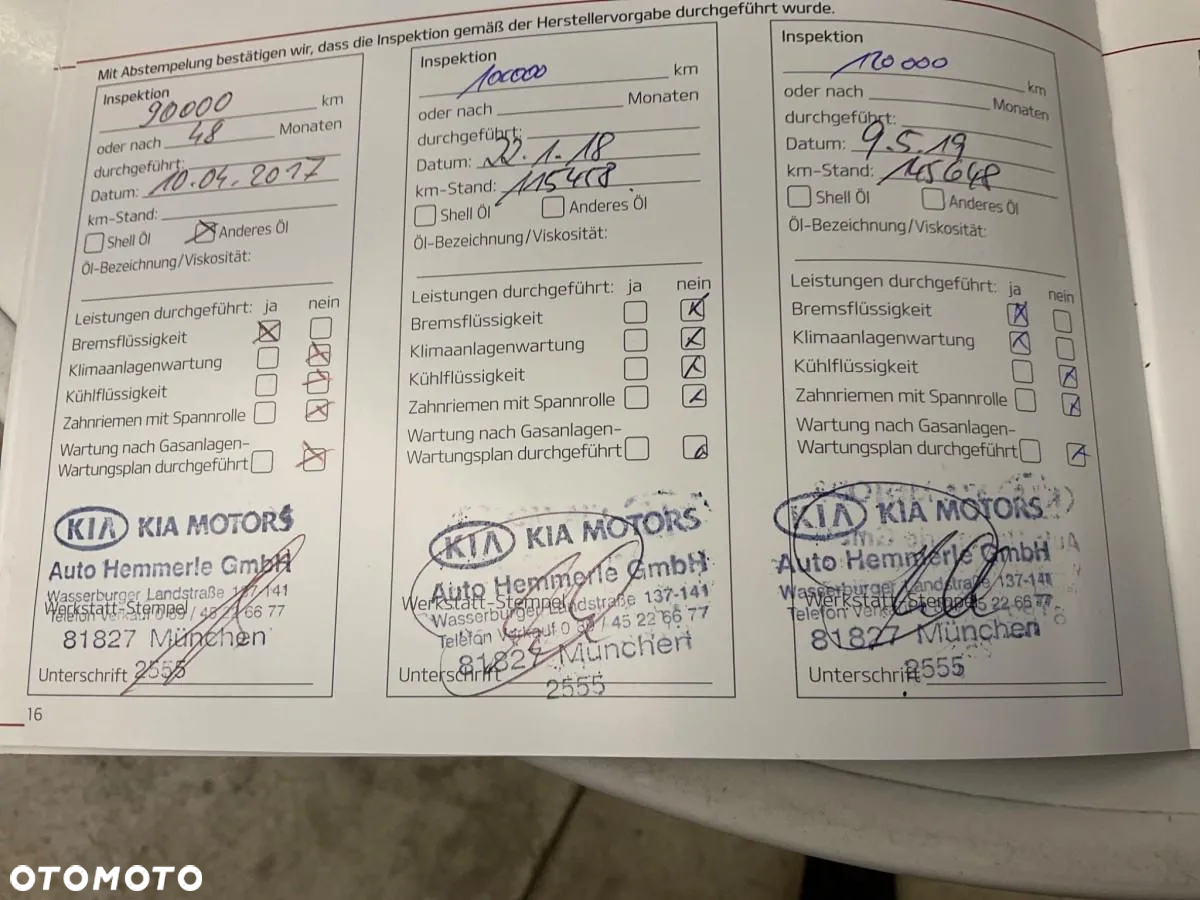 Mit Abstempelung bestätigen wir, dass die Inspektion gemäß der Herstellervorgabe durchgeführt wurde.
Inspektion
90000 km
oder nach 48 Monaten
durchgeführt:
Datum: 10.04.2017
km-Stand:
Shell Öl Anderes Öl
Öl-Bezeichnung/Viskosität:
Leistungen durchgeführt: ja nein
Bremsflüssigkeit
Klimaanlagenwartung
Kühlflüssigkeit
Zahnriemen mit Spannrolle
Wartung nach Gasanlagen-
Wartungsplan durchgeführt
KIA KIA MOTORS
Auto Hemmerle GmbH
Wasserburger Landstraße 137-141
Werkstatt-Stempel
Telefon Verkauf 0 89 / 45 22 66 77
81827 München
Unterschrift 2555
16
Inspektion
100000 km
oder nach Monaten
durchgeführt:
Datum: 22.1.18
km-Stand: 115458
Shell Öl Anderes Öl
Öl-Bezeichnung/Viskosität:
Leistungen durchgeführt: ja nein
Bremsflüssigkeit
Klimaanlagenwartung
Kühlflüssigkeit
Zahnriemen mit Spannrolle
Wartung nach Gasanlagen-
Wartungsplan durchgeführt
KIA KIA MOTORS
Auto Hemmerle GmbH
Werkstatt-Stempel
Wasserburger Landstraße 137-141
Telefon Verkauf 0 89 / 45 22 66 77
81827 München
Unterschrift
2555
Inspektion
120000 km
oder nach Monaten
durchgeführt:
Datum: 9.5.19
km-Stand: 145648
Shell Öl Anderes Öl
Öl-Bezeichnung/Viskosität:
Leistungen durchgeführt: ja nein
Bremsflüssigkeit
Klimaanlagenwartung
Kühlflüssigkeit
Zahnriemen mit Spannrolle
Wartung nach Gasanlagen-
Wartungsplan durchgeführt
KIA KIA MOTORS
Auto Hemmerle GmbH
Wasserburger Landstraße 137-141
Werkstatt-Stempel
Telefon 45 22 66 77
81827 München
Unterschrift 2555
OTOMOTO